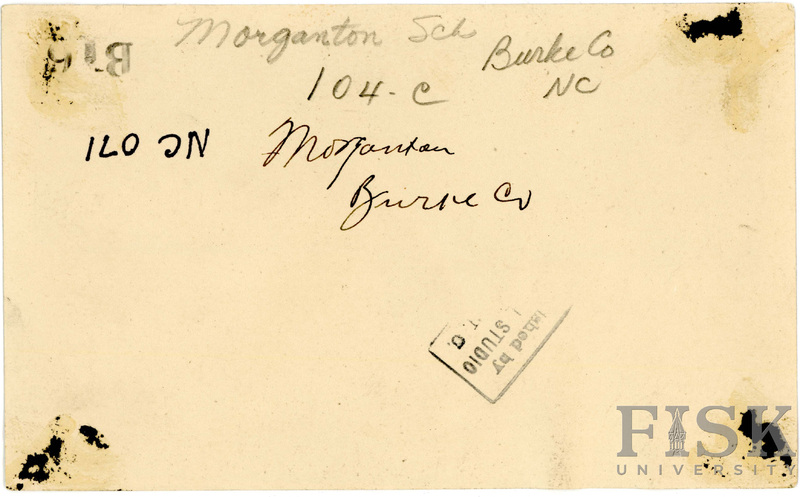 Morganton Sch
Burke Co
NC
104-C
NC 071
Morganton
Burke Co
by
STUDIO
FISK
UNIVERSITY